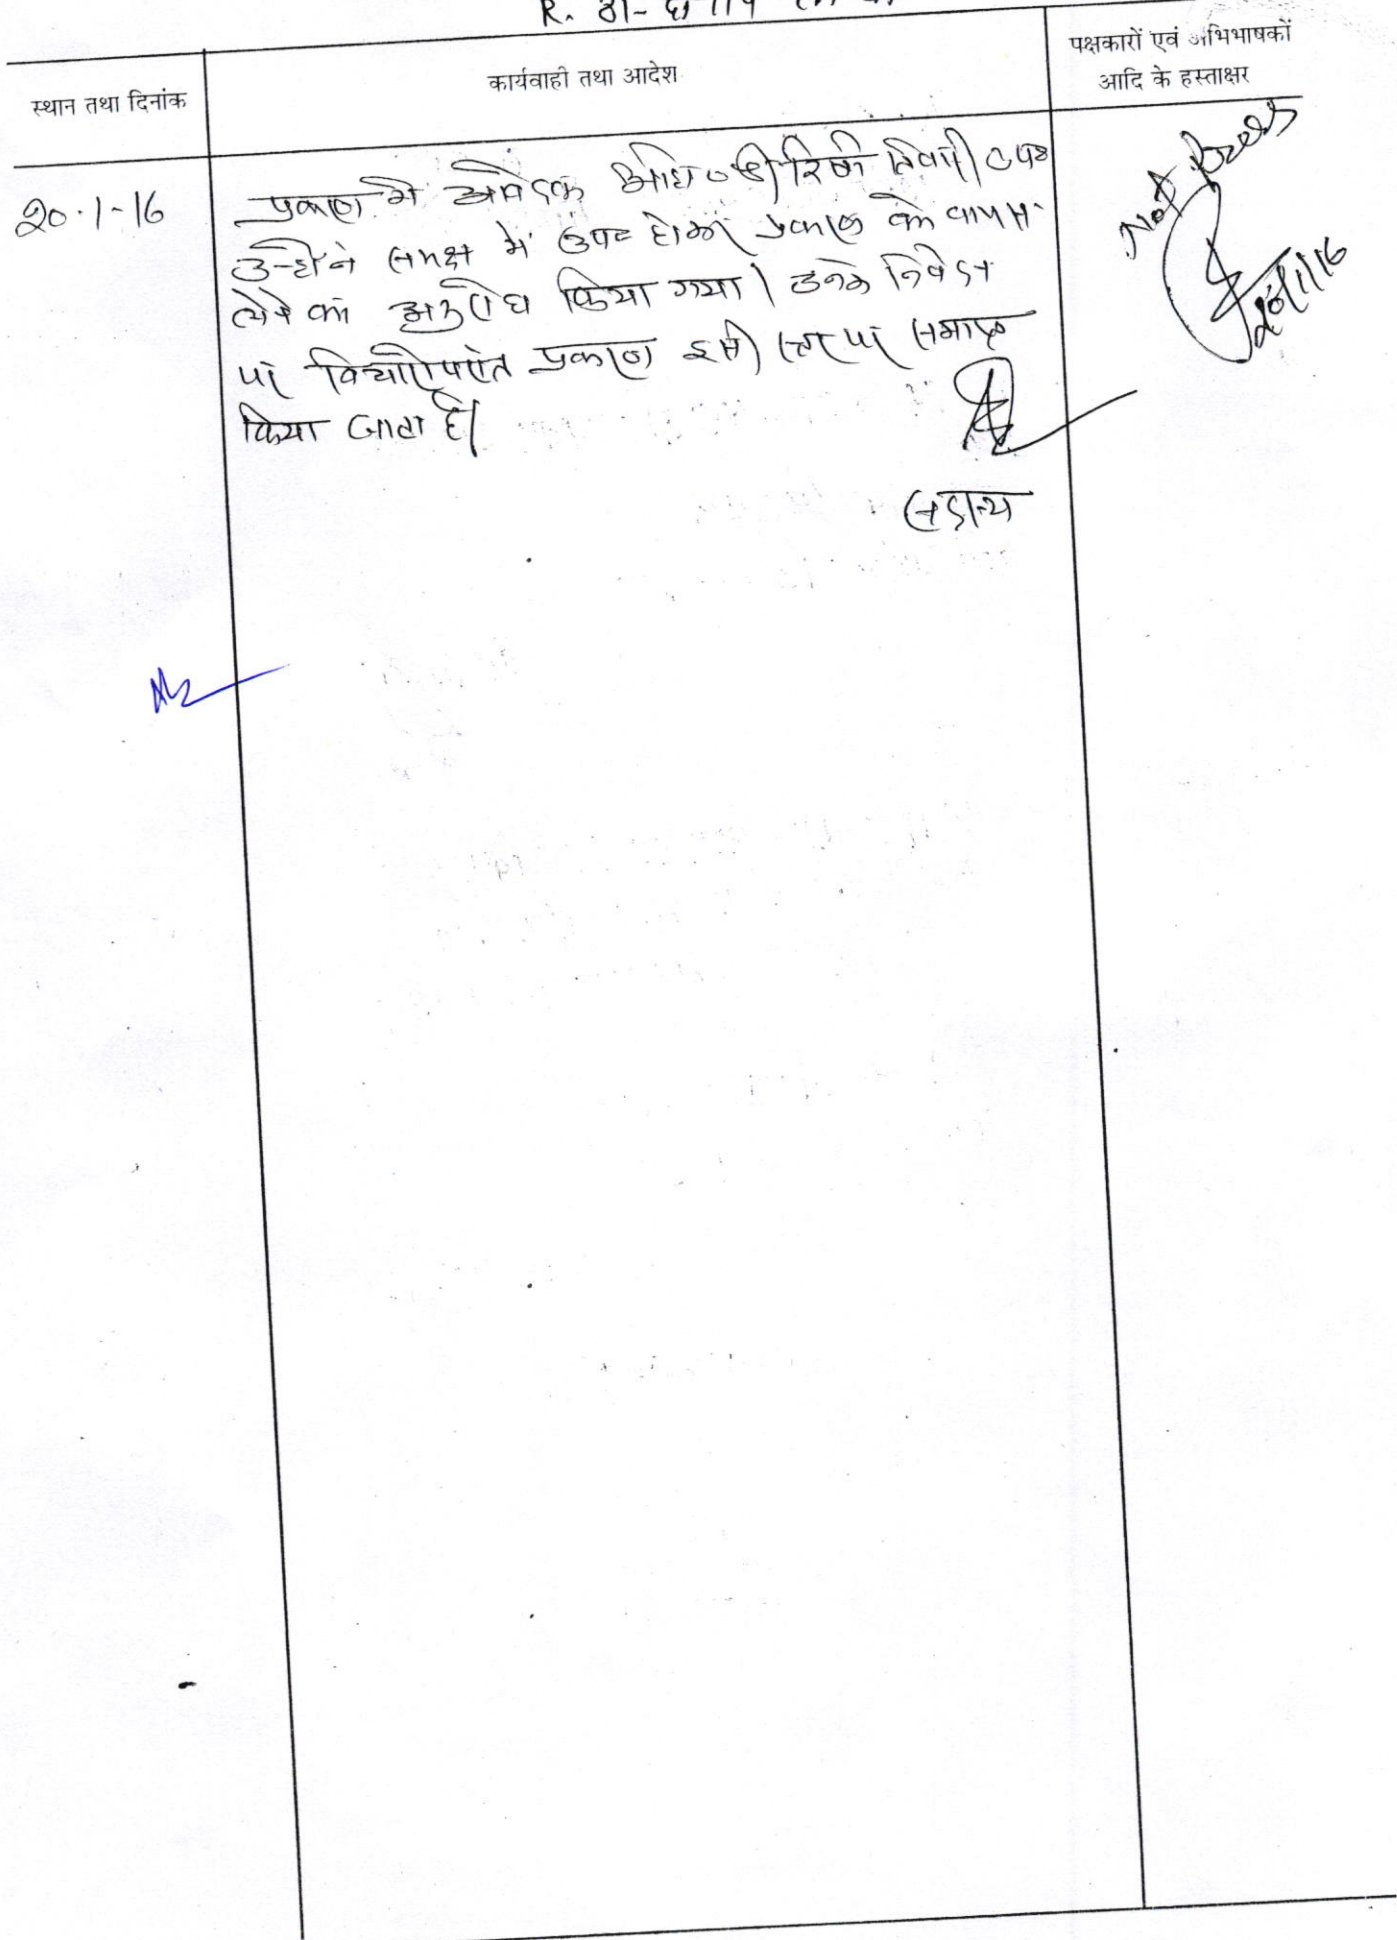 R. 81-
स्थान तथा दिनांक
कार्यवाही तथा आदेश
पक्षकारों एवं अभिभाषकों
आदि के हस्ताक्षर
20.1-16
प्रकरण में आवेदक अभि० श्री तिवारी उप०
उन्होंने समक्ष में उप० होकर प्रकरण को वापस
लेने का अनुरोध किया गया। उनके निवेदन
पर विचारोपरांत प्रकरण इसी स्तर पर समाप्त
किया जाता है।
सदस्य
Not Press
20/1/16